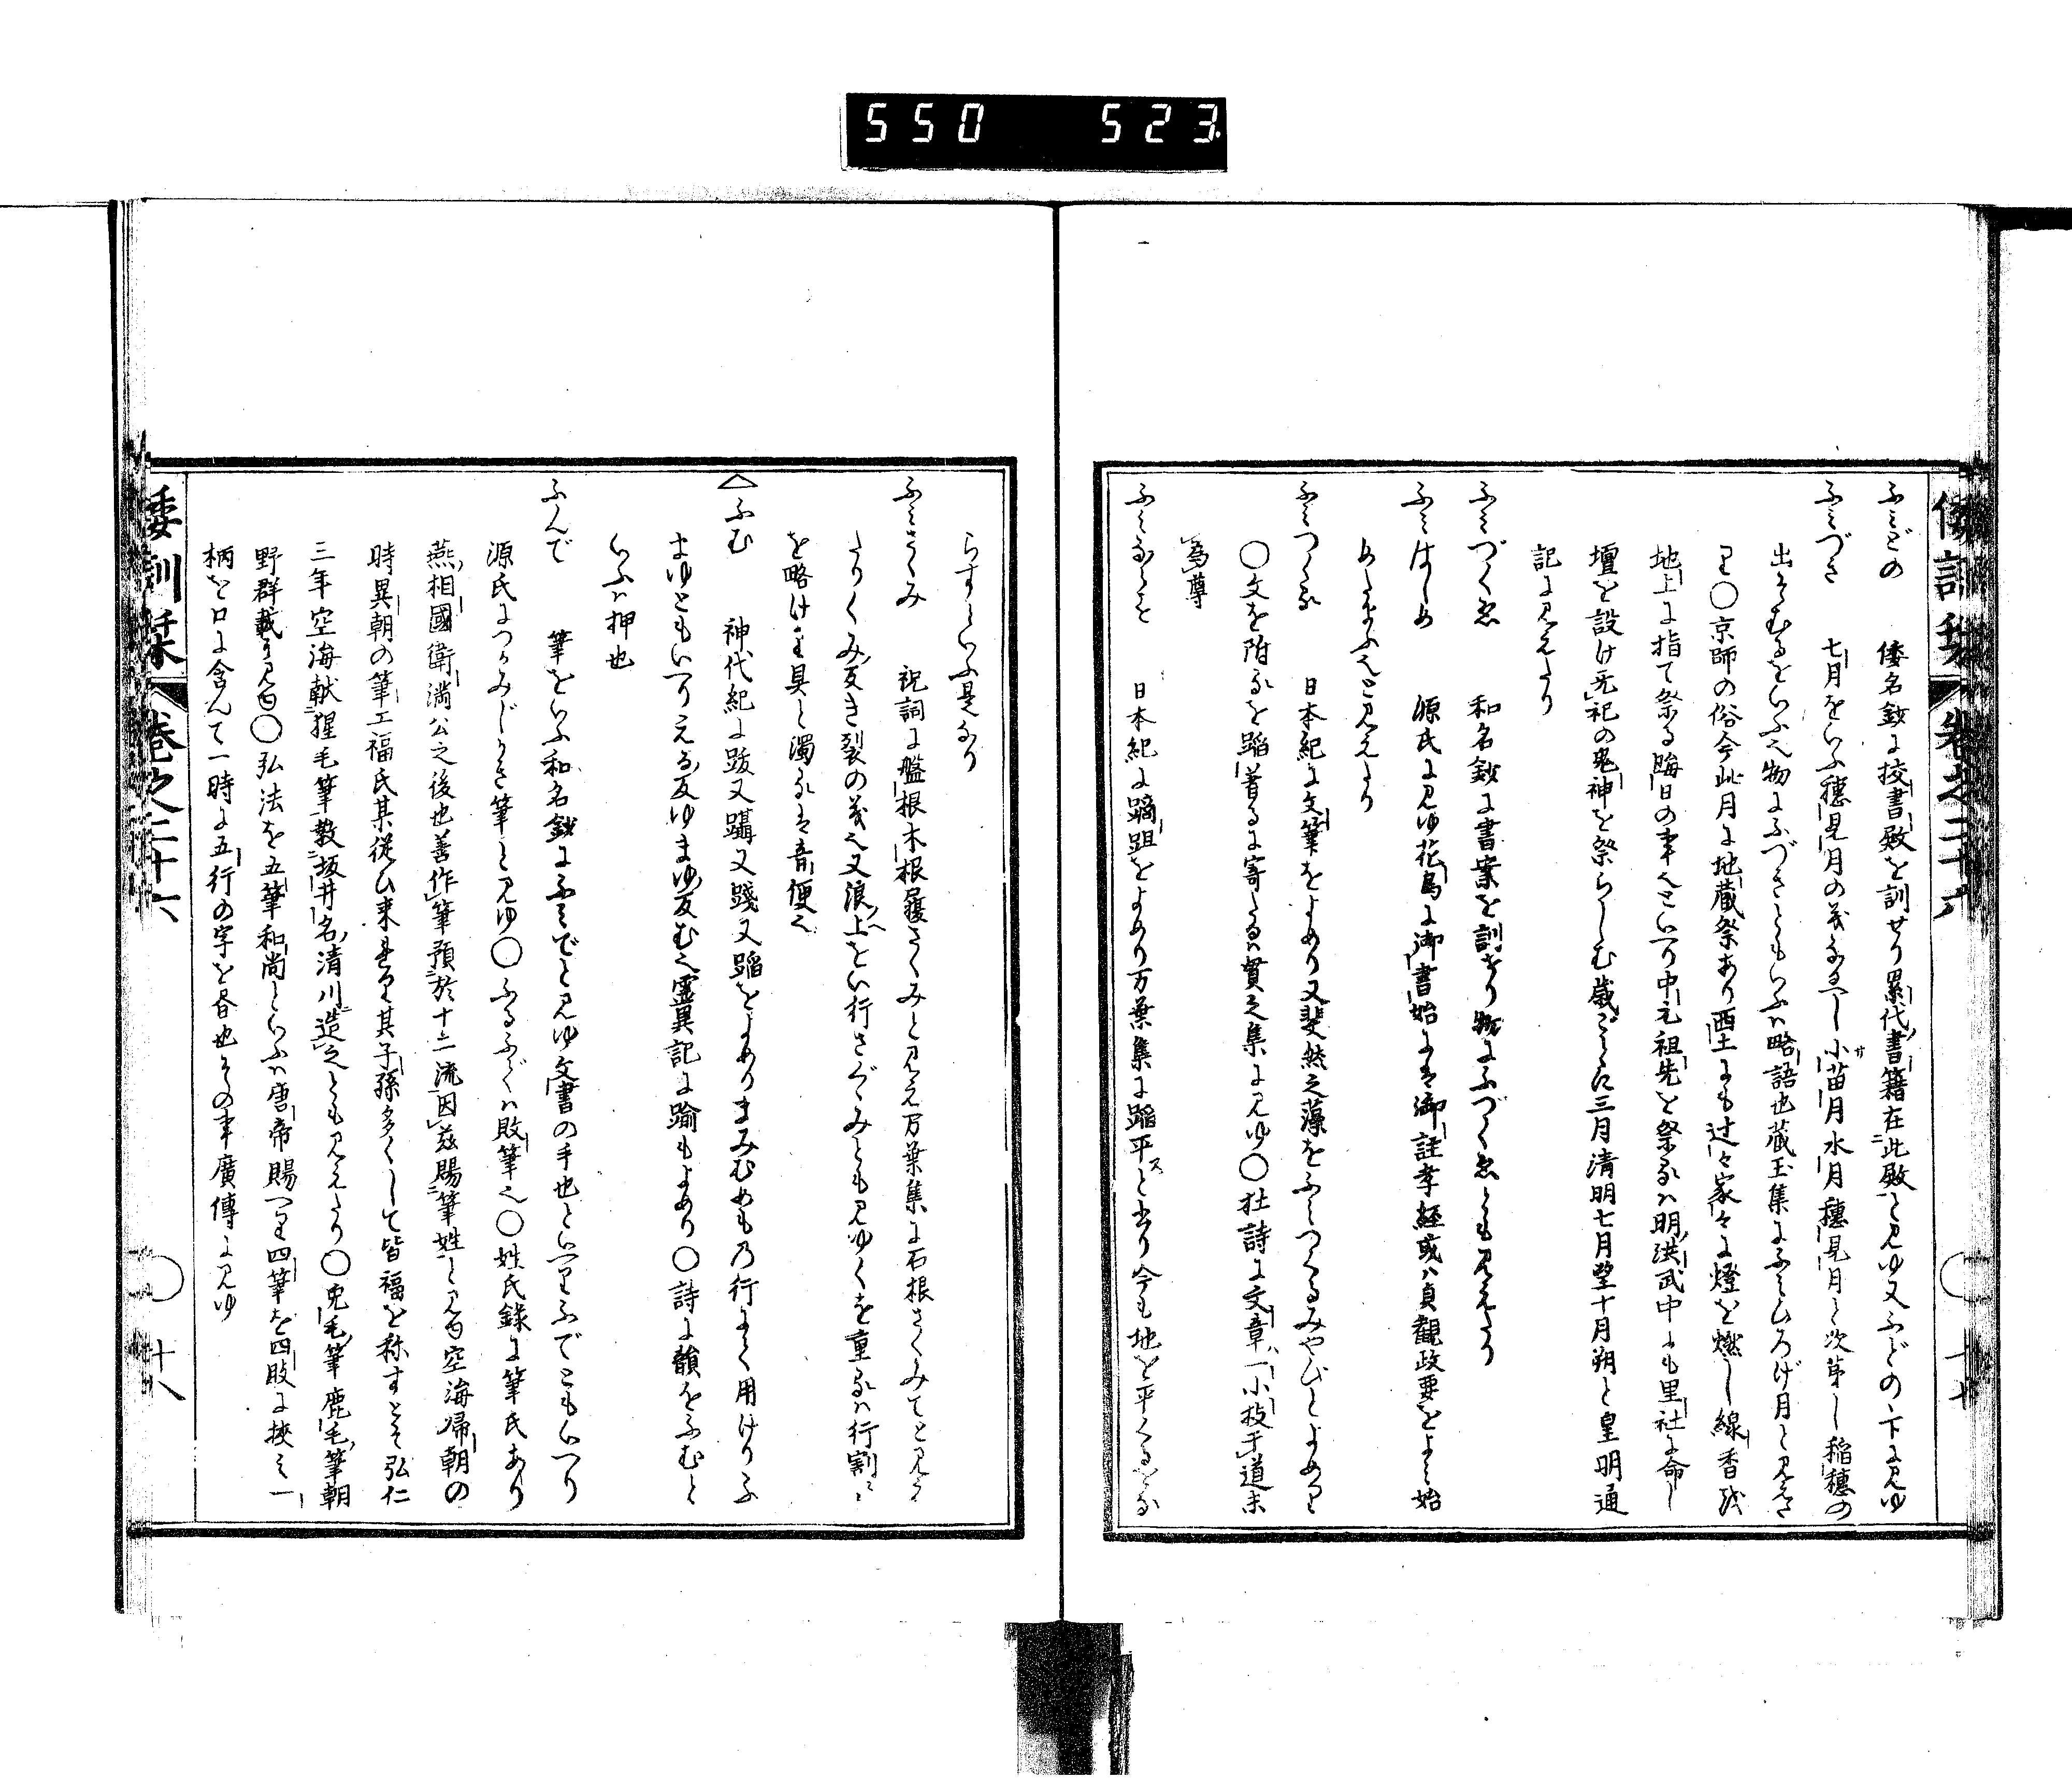 550 523
倭訓栞 卷之二十六 ○十七
ふみどの 倭名鈔に挍書殿を訓せり累代書籍在此殿と見ゆ又ふどの下に見ゆ
ふみづき 七月をいふ穗見月の義なるべし小苗月水月穗見月と次第し稲穗の
出そむるをいふ也物にふづきともいふハ略語也蔵玉集にふミひろげ月と見えた
り○京師の俗今此月に地蔵祭あり西土にも辻々家々に燈を燃し線香を
地上に指て祭る晦日の事也といへり中元祖先を祭るハ明洪武中にも里社に命し
壇を設け无祀の鬼神を祭らしむ歳ごとに三月清明七月望十月朔と皇明通
記に見えたり
ふみづくゑ 和名鈔に書案を訓せり物にふづくゑとも見えたり
ふみはじめ 源氏に見ゆ花鳥に御書始には御註孝経或ハ貞観政要をよミ始
めたまふ也と見えたり
ふミつくる 日本紀に文筆をよめり又斐然之藻をふミつくるみやびとよめり
○文を附るを蹈着るに寄たるハ貫之集に見ゆ○杜詩に文章ハ一小技于道未
為尊
ふミならす 日本紀に蹢跙をよめり万葉集に蹈平スと書り今も地を平くるをな
らすといふ是なり
ふミさくみ 祝詞に磐根木根履さくみと見え万葉集に石根さくみてと見え
たりくみ反き裂の義也又浪ノ上をい行さぐみとも見ゆくを重るハ行割ミ
を略けり其を濁るは音便也
△ふむ 神代紀に跋又躡又踐又蹈をよめりまみむめも乃行によく用けりふ
まゆともいへりえる反ゆまゆ反む也霊異記に踰もよめり○詩に韻をふむと
いふハ押也
ふんで 筆をいふ和名鈔にふミでと見ゆ文書の手也といへりふでともいへり
源氏につかみじかき筆と見ゆ○ふるふでハ敗筆也○姓氏錄に筆氏あり
燕ノ相國衛満公之後也善作筆預於十二流因茲賜筆姓と見ゆ空海帰朝の
時異朝の筆工福氏某従ひ来れり其子孫多くして皆福を称すとそ弘仁
三年空海献狸毛筆教坂井ノ名清川造之とも見えたり○兎毛ノ筆鹿毛ノ筆朝
野群載に見ゆ○弘法を五筆和尚といふハ唐帝賜へり四筆を四肢に挾ミ一
柄を口に含んて一時に五行の字を書也その事廣傳に見ゆ
倭訓栞 卷之二十六 ○十八